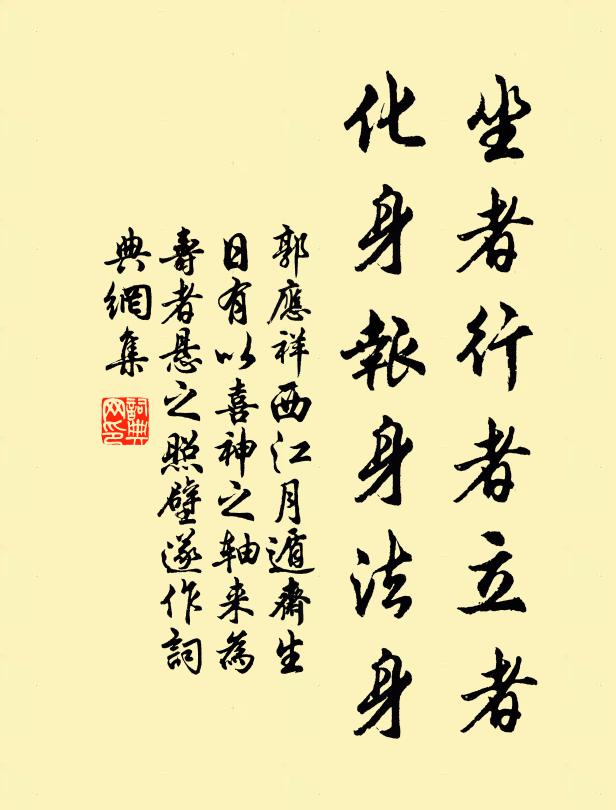 坐者行者立者
化身報身法身
郭應祥西江月遁齋生
日有以喜神之轴来為
壽者悬之照壁遂作詞
典網集
詞典网印